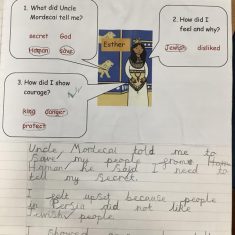 1. What did Uncle
Mordecai tell me?
secret God
Haman save
2. How did I
feel and why?
Jewish disliked
Esther
3. How did I show
courage?
king danger
protect
Uncle Mordecai told me to
save my people from
Haman he said I need to
tell my secret.
I felt upset because people
in Persia did not like
Jewish people.
I showed